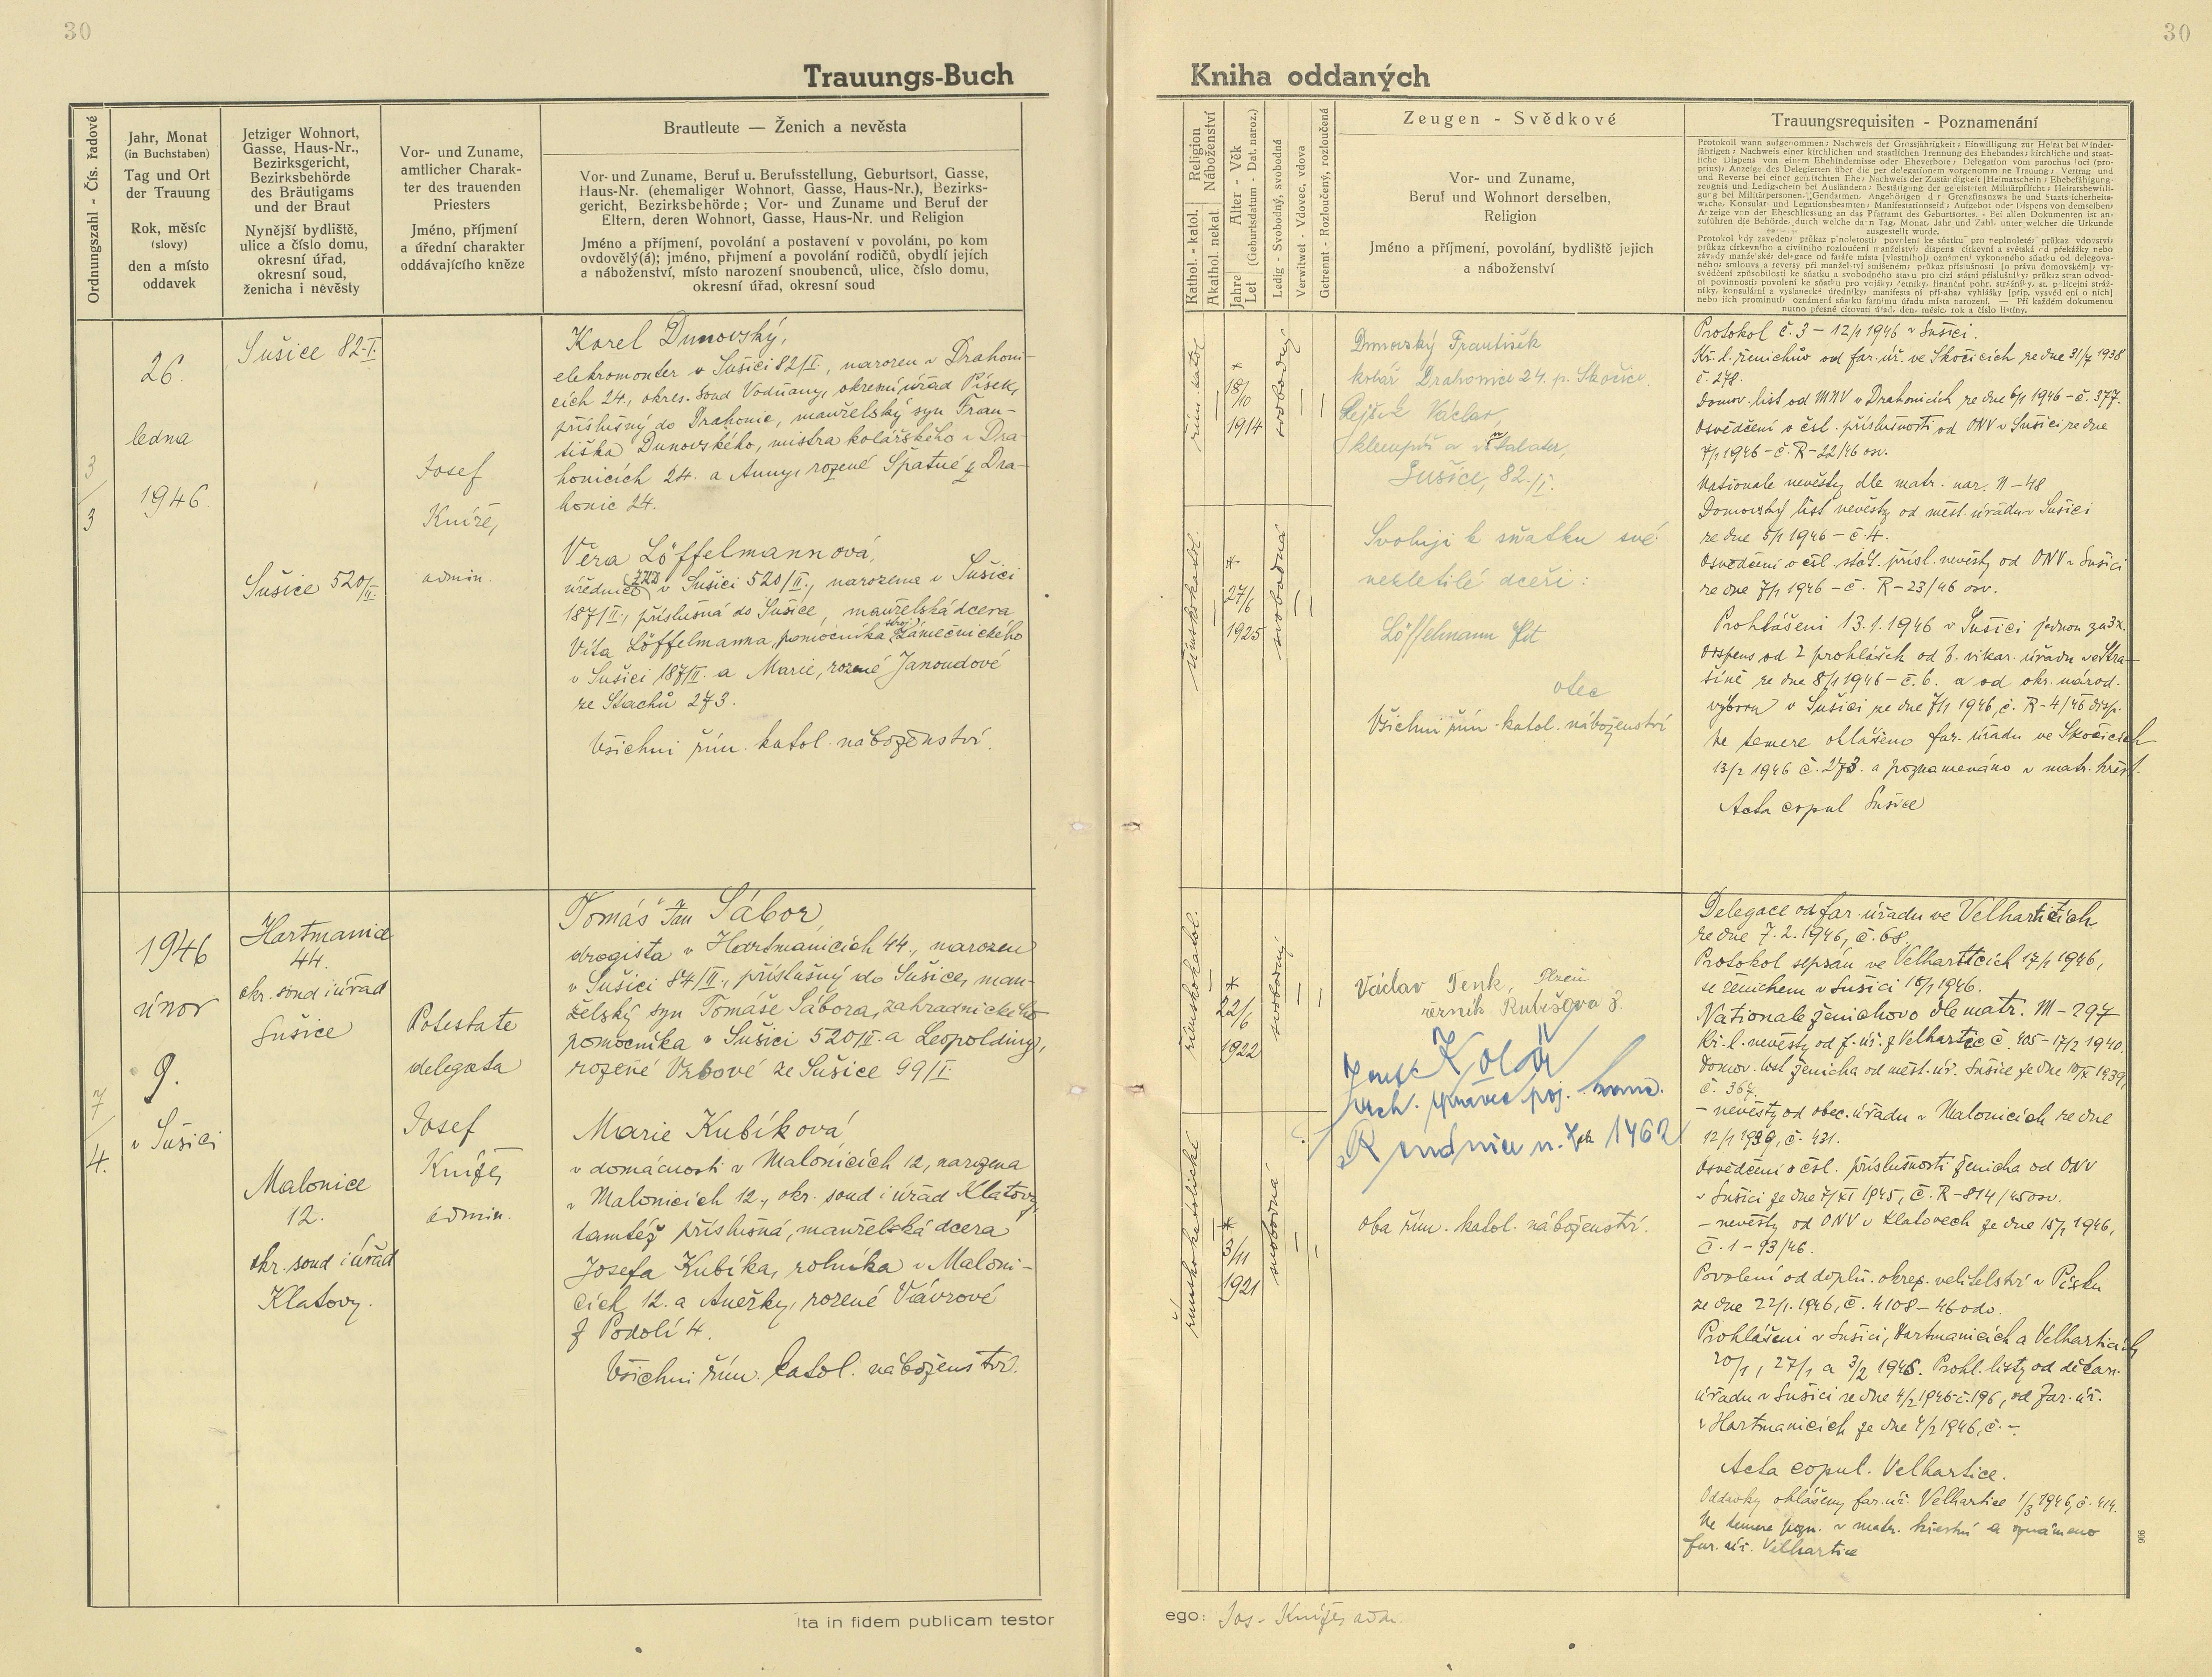 30
30
Trauungs-Buch
Kniha oddaných
Ordnungszahl - Čís. řadové
Jahr, Monat
(in Buchstaben)
Tag und Ort
der Trauung
Rok, měsíc
(slovy)
den a místo
oddavek
Jetziger Wohnort,
Gasse, Haus-Nr.,
Bezirksgericht,
Bezirksbehörde
des Bräutigams
und der Braut
Nynější bydliště,
ulice a číslo domu,
okresní úřad,
okresní soud,
ženicha i nevěsty
Vor- und Zuname,
amtlicher Charak-
ter des trauenden
Priesters
Jméno, příjmení
a úřední charakter
oddávajícího kněze
Brautleute — Ženich a nevěsta
Vor- und Zuname, Beruf u. Berufsstellung, Geburtsort, Gasse,
Haus-Nr. (ehemaliger Wohnort, Gasse, Haus-Nr.), Bezirks-
gericht, Bezirksbehörde; Vor- und Zuname und Beruf der
Eltern, deren Wohnort, Gasse, Haus-Nr. und Religion
Jméno a příjmení, povolání a postavení v povolání, po kom
ovdovělý(á); jméno, příjmení a povolání rodičů, obydlí jejich
a náboženství, místo narození snoubenců, ulice, číslo domu,
okresní úřad, okresní soud
Religion
Náboženství
Kathol. - katol.
Akathol. nekat.
Alter - Věk
(Geburtsdatum - Dat. naroz.)
Jahre
Let
Ledig - Svobodný, svobodná
Verwitwet - Vdovec, vdova
Getrennt - Rozloučený, rozloučená
Zeugen - Svědkové
Vor- und Zuname,
Beruf und Wohnort derselben,
Religion
Jméno a příjmení, povolání, bydliště jejich
a náboženství
Trauungsrequisiten - Poznamenání
3
3
26.
ledna
1946
Sušice 82-I.
Sušice 520/II.
Josef
Kníže,
admin.
Karel Dunovský,
elektromonter v Sušici 82/I., narozen v Drahoni-
cích 24., okres. soud Vodňany, okresní úřad Písek,
příslušný do Drahonic, manželský syn Fran-
tiška Dunovského, mistra kolářského v Dra-
honicích 24. a Anny, rozené Špatné z Dra-
honic 24.
Věra Löffelmannová,
v Sušici 520/II., narozena v Sušici
187/II., příslušná do Sušice, manželská dcera
Víta Löffelmanna, pomocníka stroj. zámečnického
v Sušici 187/II. a Marie, rozené Janoudové
ze Stachů 273.
Všichni řím. katol. náboženství.
řím. katol.
*
18/10
1914
svobodný
římskokatol.
*
27/6
1925
svobodná
Dunovský František
kolář Drahonice 24. p. Skočice.
Rejšek Václav,
klempíř a instalater,
Sušice, 82./I.
Svoluji k sňatku své
nezletilé dceři:
Löffelmann Vít
otec
Všichni řím. katol. náboženství
Protokol č. 3 – 12/1 1946 v Sušici.
Kř. l. ženichův od far. úř. ve Skočicích ze dne 31/7 1938
č. 278.
Domov. list od MNV v Drahonicích ze dne 6/1 1946 – č. 377.
Osvědčení o čsl. příslušnosti od ONV v Sušici ze dne
7/1 1946 – č. R-22/46 osv.
Nationale nevěsty dle matr. nar. N – 48
Domovský list nevěsty od měst. úřadu v Sušici
ze dne 5/1 1946 – č. 4.
Osvědčení o čsl. stát. přísl. nevěsty od ONV v Sušici
ze dne 7/1 1946 – č. R – 23/46 osv.
Prohlášení 13.1.1946 v Sušici jednou za 3x.
Dispens od 2 prohlášek od b. vikar. úřadu ve Stra-
šíně ze dne 8/1 1946 – č. 6. a od okr. národ.
výboru v Sušici ze dne 7/1 1946, č. R – 4/46 disp.
Ne temere ohlášeno far. úřadu ve Skočicích
13/2 1946 č. 273. a poznamenáno v matr. křest.
Acta copul Sušice
7
4.
1946
únor
9.
v Sušici
Hartmanice
44.
okr. soud i úřad
Sušice
Malonice
12.
okr. soud i úřad
Klatovy.
Potestate
delegata
Josef
Kníže,
admin.
Tomáš Jan Sábor,
drogista v Hartmanicích 44., narozen
v Sušici 84/II., příslušný do Sušice, man-
želský syn Tomáše Sábora, zahradnického
pomocníka v Sušici 520/II. a Leopoldiny,
rozené Vrbové ze Sušice 99/I.
Marie Kubíková,
v domácnosti v Malonicích 12, narozena
v Malonicích 12., okr. soud i úřad Klatovy,
tamtéž příslušná, manželská dcera
Josefa Kubíka, rolníka v Maloni-
cích 12. a Anežky, rozené Vávrové
z Podolí 4.
Všichni řím. katol. náboženství.
římskokatol.
*
22/6
1922
svobodný
římskokatolické
*
3/11
1921
svobodná
Václav Tenk, Plzeň
řezník Rubešova 8.
Josef Kolář
vrch. správce poj.
Roudnice n. Lab. 1462
oba řím. katol. náboženství.
Delegace od far. úřadu ve Velharticích
ze dne 7.2.1946, č. 68.
Protokol sepsán ve Velharticích 17/1 1946,
se ženichem v Sušici 18/1 1946.
Nationale ženichovo dle matr. M – 297
Kř. l. nevěsty od f. úř. z Velhartic č. 405 – 17/2 1940.
Domov. list ženicha od měst. úř. Sušice ze dne 10/X 1939,
č. 367.
– nevěsty od obec. úřadu v Malonicích ze dne
12/1 1939, č. 431.
Osvědčení o čsl. příslušnosti ženicha od ONV
v Sušici ze dne 7/XI 1945, č. R – 814/45 osv.
– nevěsty od ONV v Klatovech ze dne 15/1 1946,
č. 1 – 93/46.
Povolení od doplň. okres. velitelství v Písku
ze dne 22/1. 1946, č. 4108 – 46 odv.
Prohlášení v Sušici, Hartmanicích a Velharticích
20/1, 27/1 a 3/2 1946. Prohl. listy od děkan.
úřadu v Sušici ze dne 4/2 1946 č. 196, od far. úř.
v Hartmanicích ze dne 4/2 1946, č. –.
Acta copul. Velhartice.
Oddavky ohlášeny far. úř. Velhartice 1/3 1946, č. 414.
Ne temere pozn. v matr. křestní a oznámeno
far. úř. Velhartice
906
Ita in fidem publicam testor
ego: Jos. Kníže, adm.